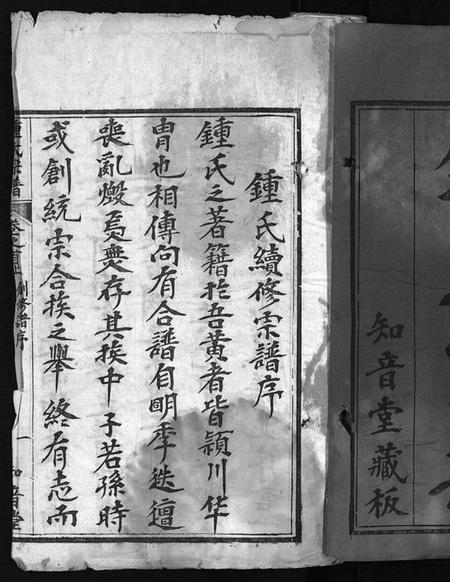 知音堂藏板
鍾氏續修宗譜序
鍾氏之著籍於吾黃者皆潁川华
冑也相傳向有合譜自明季迭遭
喪亂燬焉無存其族中子若孫時
或創統宗合族之舉終有志而
鍾氏宗譜
卷之首
創修譜序
一
知音堂